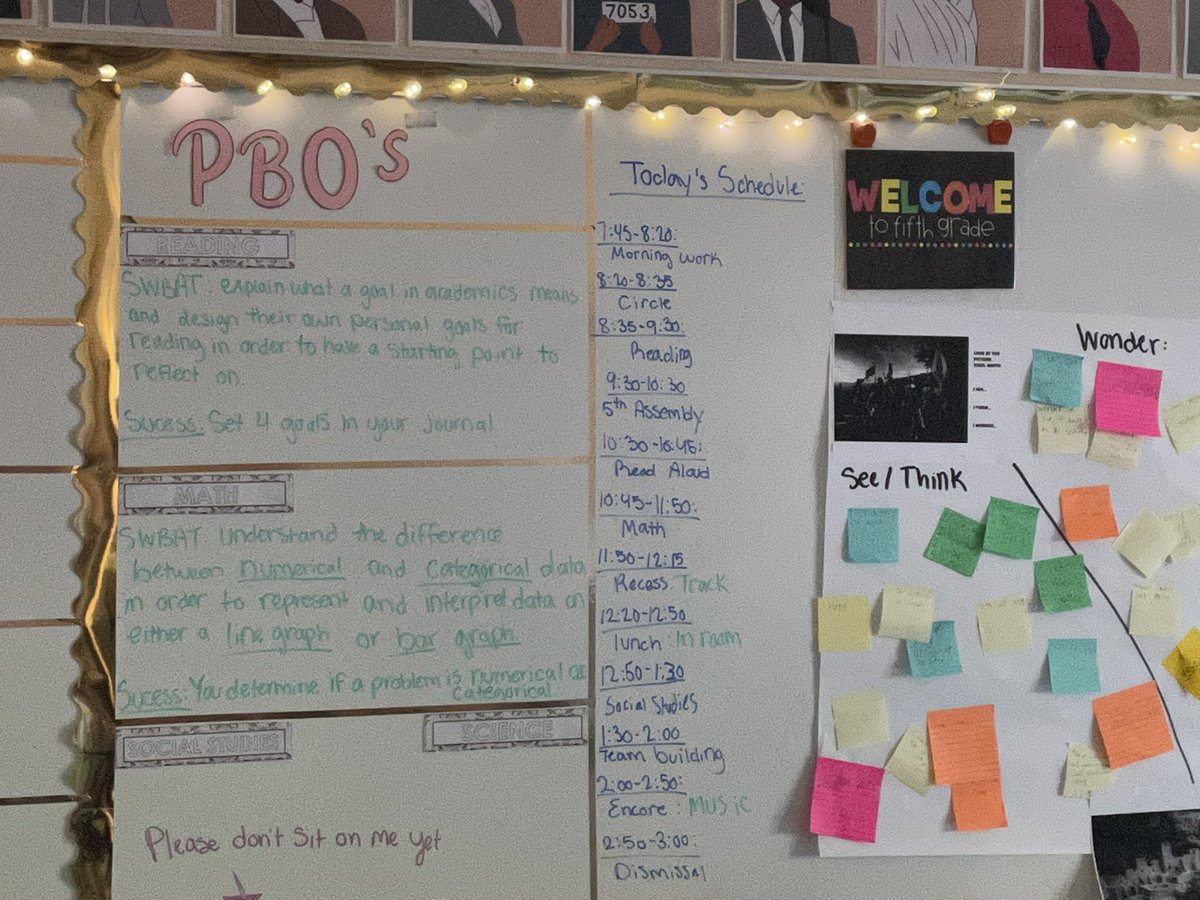 7053
PBO's
READING
SWBAT: explain what a goal in academics means
and design their own personal goals for
reading in order to have a starting point to
reflect on.
Sucess: Set 4 goals in your journal
MATH
SWBAT: Understand the difference
between numerical and categorical data
in order to represent and interpret data on
either a line graph or bar graph.
Sucess: You determine if a problem is numerical or
categorical
SOCIAL STUDIES
SCIENCE
Please don't sit on me yet
Today's Schedule:
7:45-8:20:
Morning work
8:20-8:35
Circle
8:35-9:30:
Reading
9:30-10:30
5th Assembly
10:30-10:45:
Read Aloud
10:45-11:50:
Math
11:50-12:15
Recess: Track
12:20-12:50
lunch: In room
12:50-1:30
Social Studies
1:30-2:00
Team building
2:00-2:50:
Encore: Music
2:50-3:00
Dismissal
WELCOME
to fifth grade
Wonder:
See/Think